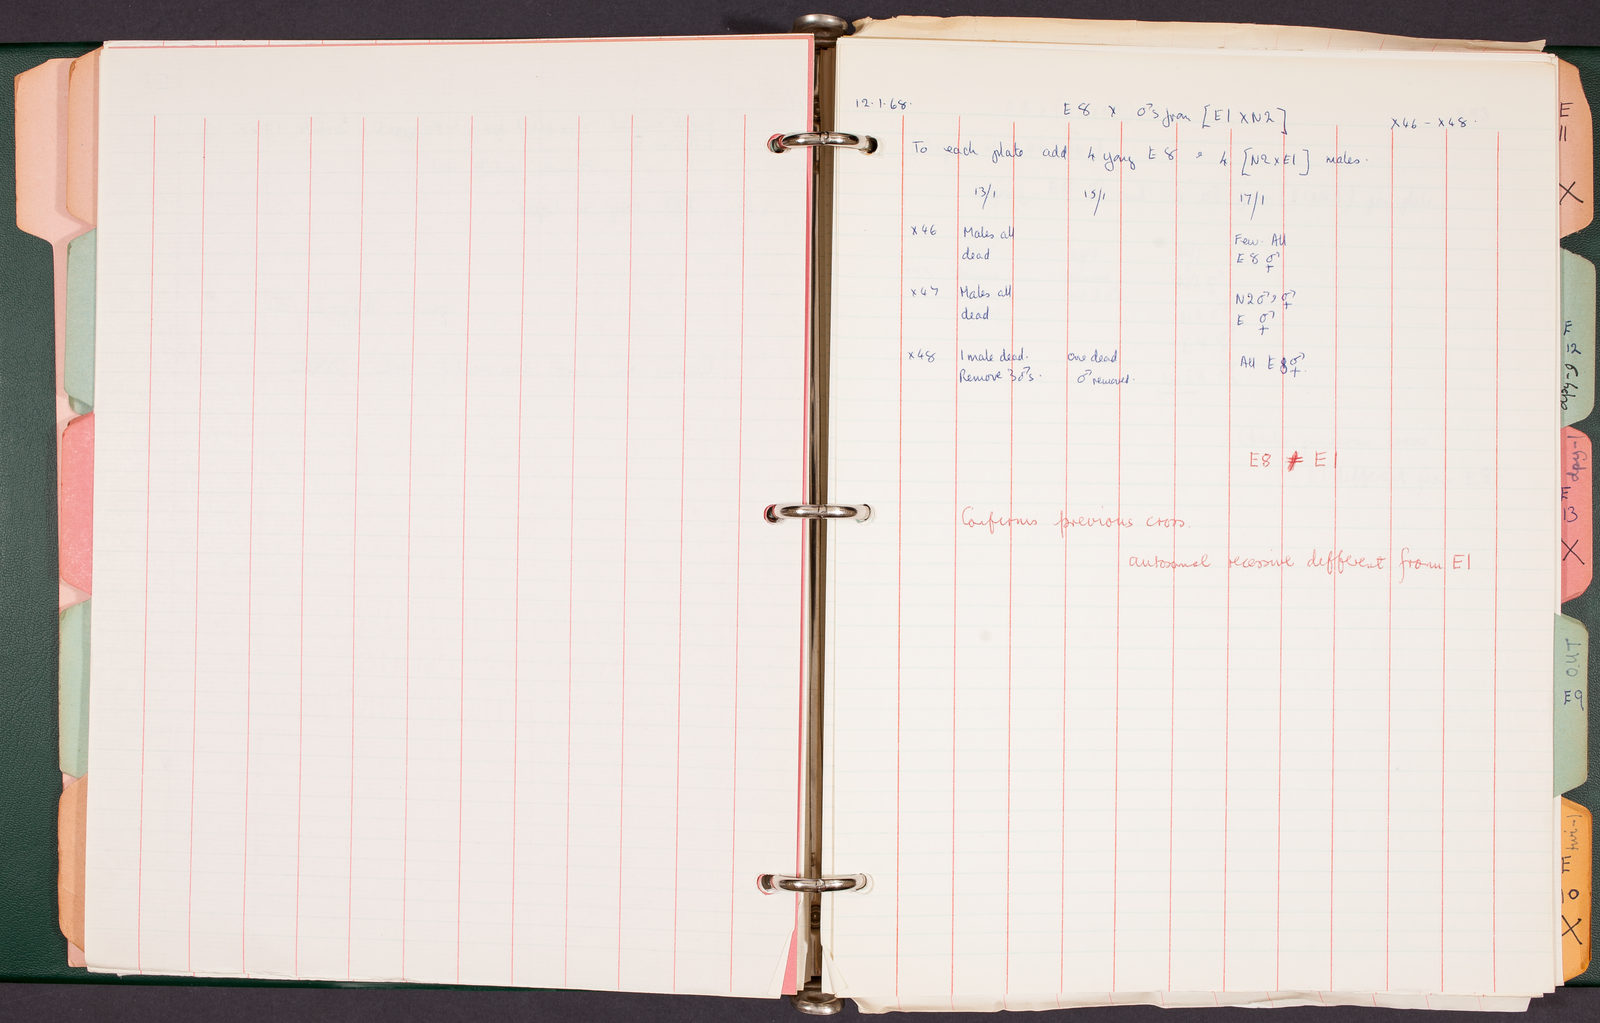 12.1.68.
E8 x ♂s from [E1 x N2]
X46 - X48.
To each plate add 4 young E8 & 4 [N2xE1] males.
13/1 15/1 17/1
x46 Males all dead Few. All E8 ⚥
x47 Males all dead N2♂, ⚥ E ⚥
x48 1 male dead. Remove 3♂s. One dead ♂ removed. All E8 ⚥.
E8 ≠ E1
Confirms previous cross.
autosomal recessive different from E1
E 11 X
E 12 dpy-9
E 13 dpy-1 X
OUT E9
E 10 twi-1 X